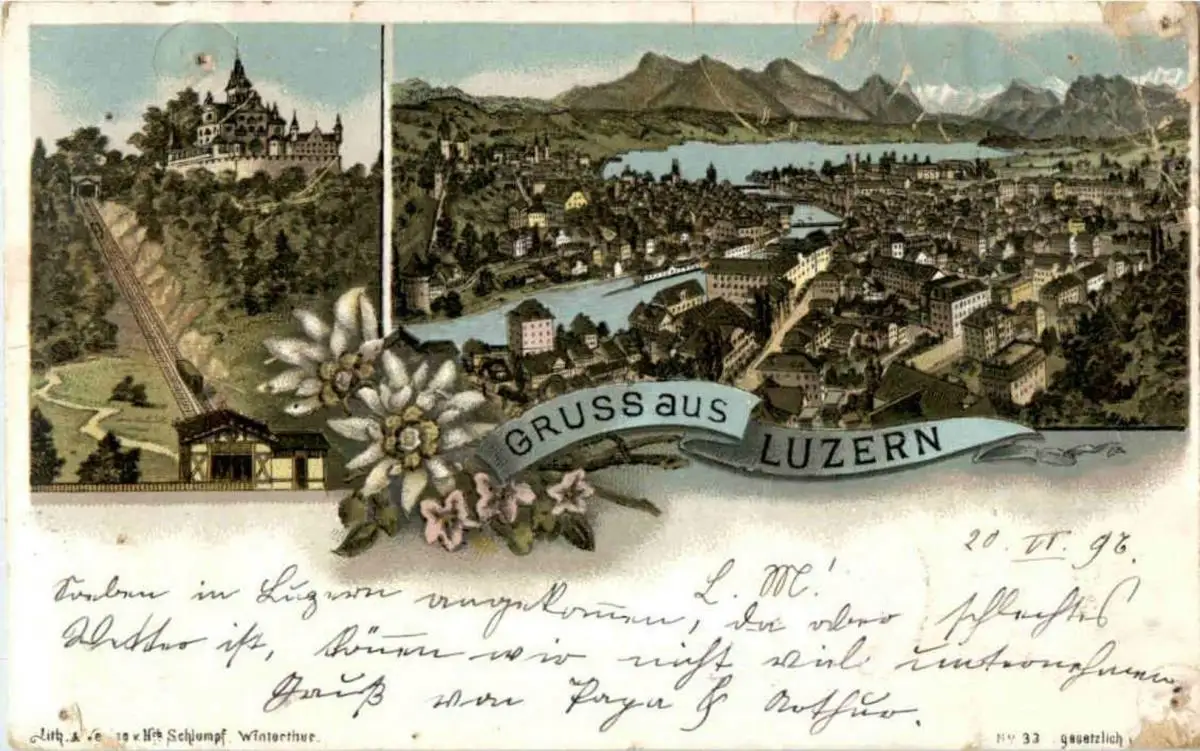 GRUSS aus
LUZERN
20. VI. 97.
L. M!
Soeben in Luzern angekom̅en, da aber schlechtes
Wetter ist, kön̅en wir nicht viel unternehmen
Gruß von Papa & Arthur.
Lith. & v. Hch Schlumpf. Winterthur.
No 33 gesetzlich